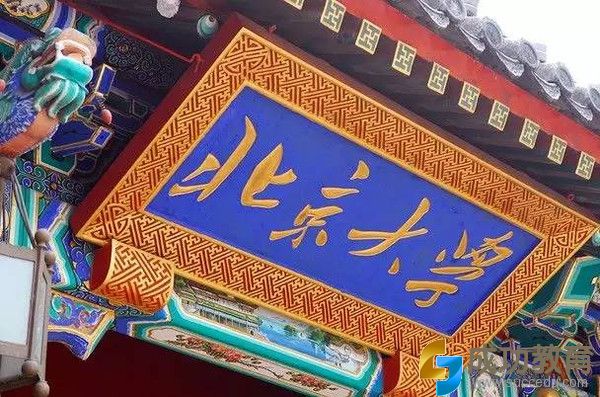 北京大学
成功教育
www.succedu.com